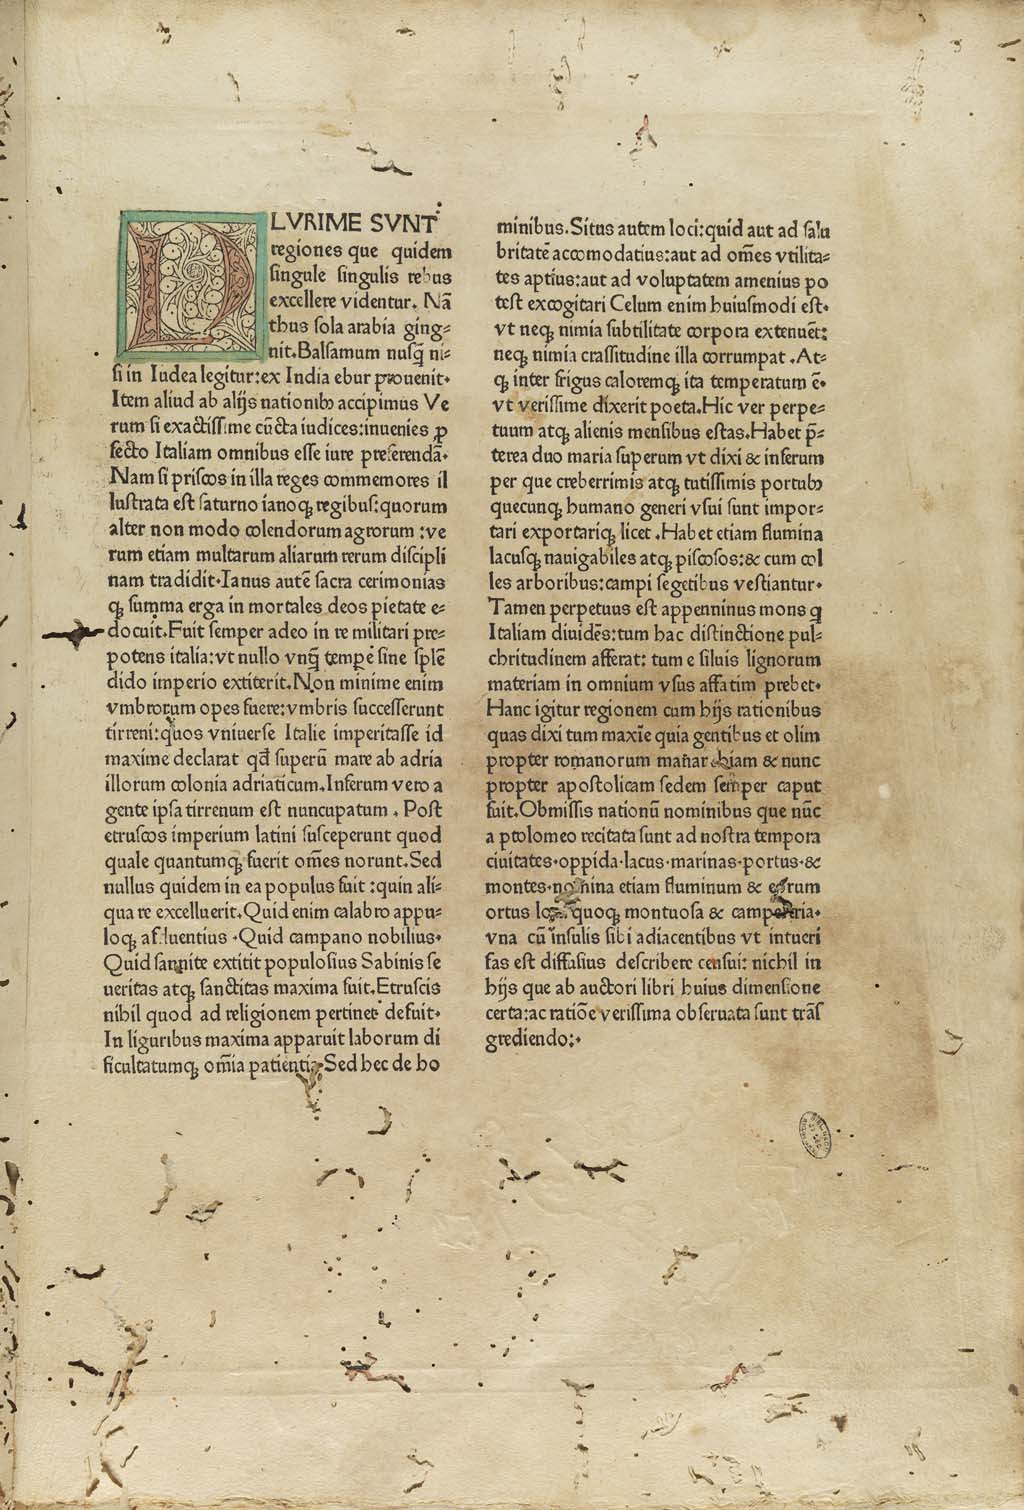 PLVRIME SVNT
regiones que quidem
singule singulis rebus
excellere videntur. Nā
thus sola arabia ging⸗
nit. Balsamum nusꝗ̄ ni⸗
si in Iudea legitur: ex India ebur prouenit.
Item aliud ab alijs nationibꝫ accipimus Ve
rum si exactissime cūcta iudices: inuenies ꝓ
fecto Italiam omnibus esse iure preferendā.
Nam si priscos in illa reges commemores il
lustrata est saturno ianoqꝫ regibus: quorum
alter non modo colendorum agrorum : ve
rum etiam multarum aliarum rerum discipli
nam tradidit. Ianus autē sacra cerimonias
qꝫ summa erga in mortales deos pietate e⸗
docuit. Fuit semper adeo in re militari pre⸗
potens italia: vt nullo vnꝗ̄ tempꝑe sine splē
dido imperio extiterit. Non minime enim
vmbrorum opes fuere: vmbris successerunt
tirreni: quos vniuerse Italie imperitasse id
maxime declarat qd̄ superū mare ab adria
illorum colonia adriaticum. Inferum vero a
gente ipsa tirrenum est nuncupatum . Post
etruscos imperium latini susceperunt quod
quale quantumqꝫ fuerit om̄es norunt. Sed
nullus quidem in ea populus fuit : quin ali⸗
qua re excelluerit. Quid enim calabro appu⸗
loqꝫ afluentius . Quid campano nobilius.
Quid sannite extitit populosius Sabinis se
ueritas atqꝫ sanctitas maxima fuit. Etruscis
nihil quod ad religionem pertinet defuit.
In liguribus maxima apparuit laborum di
ficultatumqꝫ om̄ia patientia. Sed hec de ho
minibus. Situs autem loci: quid aut ad salu
britatē accomodatius: aut ad om̄es vtilita⸗
tes aptius: aut ad voluptatem amenius po
test excogitari Celum enim huiusmodi est.
vt neqꝫ nimia subtilitate corpora extenuet:
neqꝫ nimia crassitudine illa corrumpat . At⸗
qꝫ inter frigus caloremqꝫ ita temperatum ē.
vt verissime dixerit poeta. Hic ver perpe⸗
tuum atqꝫ alienis mensibus estas. Habet p̄⸗
terea duo maria superum vt dixi & inferum
per que creberrimis atqꝫ tutissimis portubꝫ
quecunqꝫ humano generi vsui sunt impor⸗
tari exportariqꝫ licet . Habet etiam flumina
lacusqꝫ nauigabiles atqꝫ piscosos: & cum col
les arboribus: campi segetibus vestiantur.
Tamen perpetuus est appenninus mons ꝗ
Italiam diuidēs: tum hac distinctione pul⸗
chritudinem afferat: tum e siluis lignorum
materiam in omnium vsus affatim prebet.
Hanc igitur regionem cum hijs rationibus
quas dixi tum maxīe quia gentibus et olim
propter romanorum mañar chiam & nunc
propter apostolicam sedem semper caput
fuit. Obmissis nationū nominibus que nūc
a ptolomeo recitata sunt ad nostra tempora
ciuitates. oppida. lacus. marinas. portus. &
montes. nomina etiam fluminum & eorum
ortus loca quoqꝫ montuosa & campestria.
vna cū insulis sibi adiacentibus vt intueri
fas est diffusius describere censui: nichil in
hijs que ab auctori libri huius dimensione
certa: ac ratiōe verissima obseruata sunt trās
grediendo:.